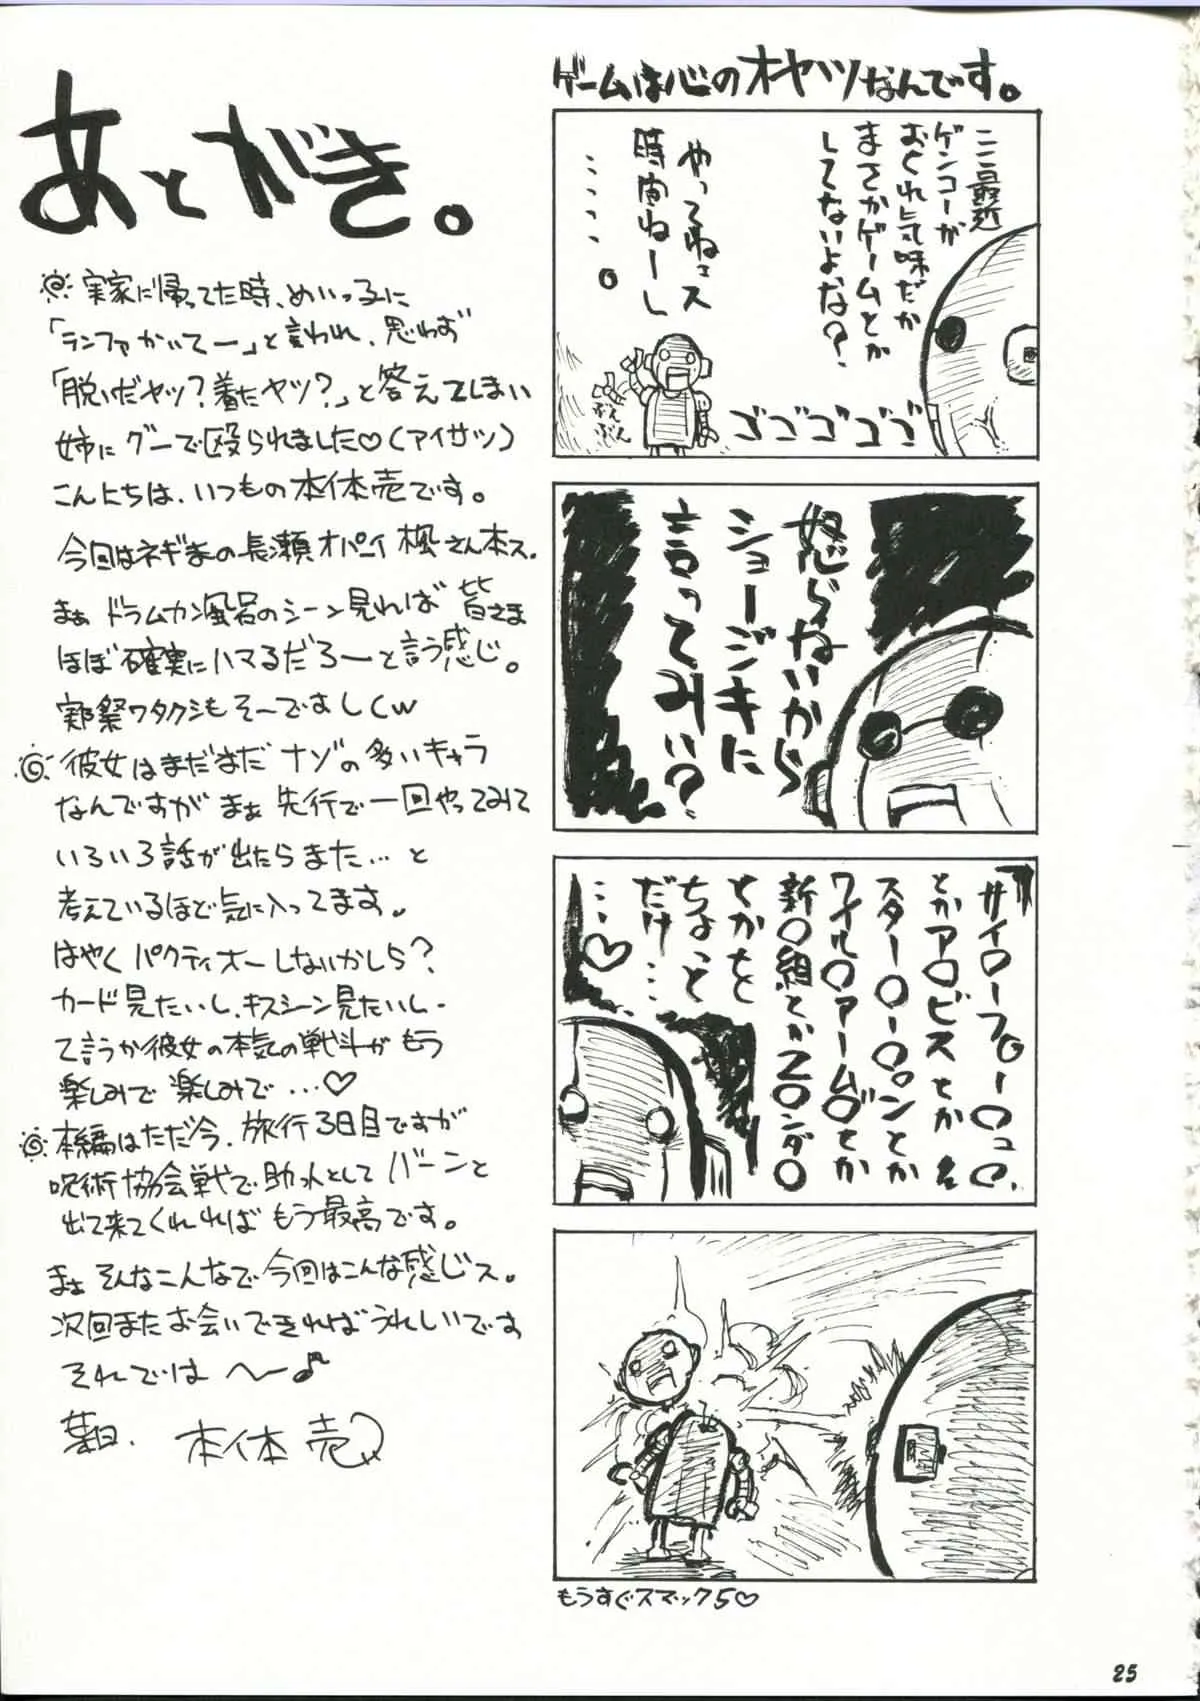 ゲームは心のオヤツなんです。
ここ最近
ゲンコーが
おくれ気味だか
まさかゲームとか
してないよな?
やってねェス
時間ねーし
・・・・・。
ぶんぶん
ゴゴゴゴゴ
怒らないから
ショージキに
言ってみい?
サイ〇ーフ〇ー〇ュ〇、
とかア〇ビスとか
スター〇ー〇ンとか
ワイル〇アーム〇とか
新〇組とかZ〇ンダ〇
とかを
ちょっと
だけ…
…♡
もうすぐスマック5♡
あとがき。
実家に帰ってた時、めいっ子に
「ランファかいてー」と言われ、思わず
「脱いだヤツ?着たヤツ?」と答えてしまい
姉にグーで殴られました♡(アイサツ)
こんにちは、いつもの本体売です。
今回はネギまの長瀬オパーイ楓さん本ス.
まぁドラムカン風呂のシーン見れば皆さま
ほぼ確実にハマるだろーと言う感じ。
実際ワタクシもそーでましくw
彼女はまだまだナゾの多いキャラ
なんですがまぁ先行で一回やってみて
いろいろ話が出たらまた…と
考えているほど気に入ってます。
はやくパクティオーしないかしら?
カード見たいし、キスシーン見たいし・
て言うか彼女の本気の戦斗がもう
楽しみで楽しみで…♡
本編はただ今、旅行3日目ですが
呪術協会戦で助っ人としてバーンと
出て来てくれればもう最高です。
まぁそんなこんなで今回はこんな感じス。
次回またお会いできればうれしいです
それではへ〜♪
本体売
25